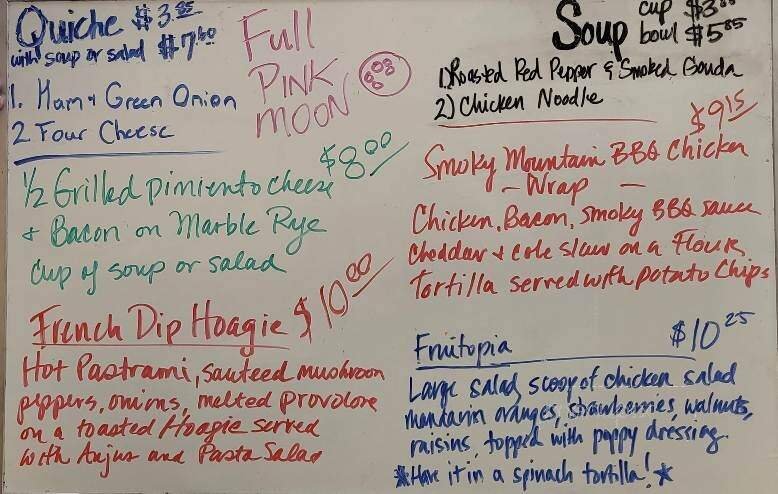 Quiche $3.85
with soup or salad $7.60
1. Ham + Green Onion
2. Four Cheese
Full
PINK
MOON
Soup cup $3.
bowl $5.85
1) Roasted Red Pepper & Smoked Gouda
2) Chicken Noodle
$8.00
1/2 Grilled Pimiento cheese
+ Bacon on Marble Rye
Cup of soup or salad
$9.15
Smoky Mountain BBQ Chicken
- Wrap -
Chicken, Bacon, Smoky BBQ sauce
Cheddar + cole slaw on a Flour
Tortilla served with potato Chips
French Dip Hoagie $10.00
Hot Pastrami, sauteed mushroom
peppers, onions, melted provolone
on a toasted Hoagie served
with Anjus and Pasta Salad
Fruitopia $10.25
Large salad, scoop of chicken salad
mandarin oranges, strawberries, walnuts,
raisins, topped with poppy dressing.
*Have it in a spinach tortilla!*